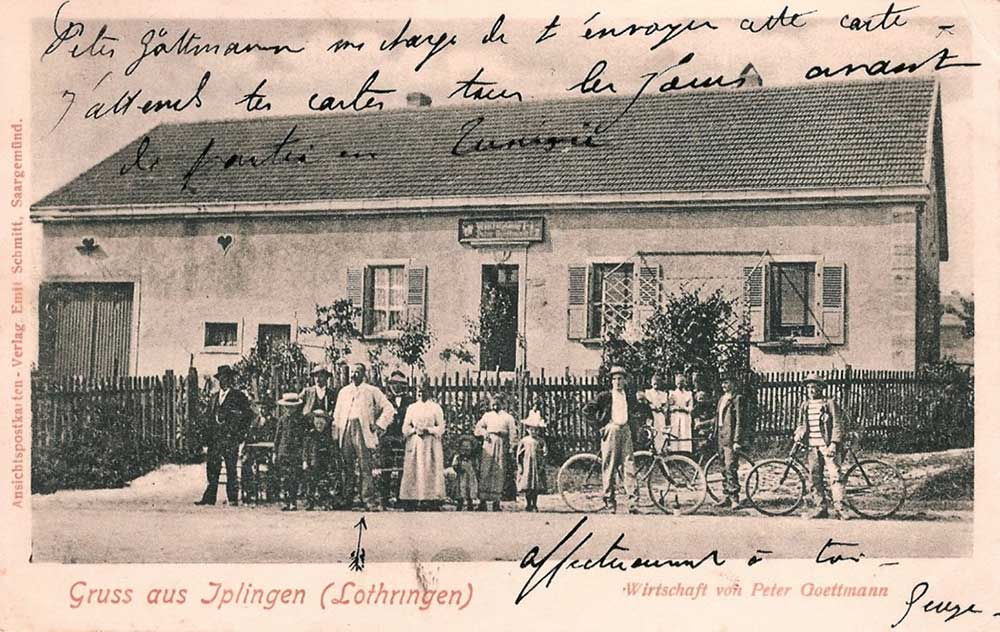 Peter Göttmann me charge de t'envoyer cette carte -
J'attends tes cartes tous les jours avant
de partir en Tunisie
Ansichtspostkarten - Verlag Emil Schmitt, Saargemünd.
Peter Goettmann
Affectueusement à toi -
Gruss aus Iplingen (Lothringen)
Wirtschaft von Peter Goettmann